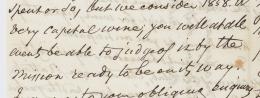 spent or so, but we consider 1858. a
very capital wine; you will at all
events be able to judge of it by the
mission ready to be on its way
to your obliging enquiry